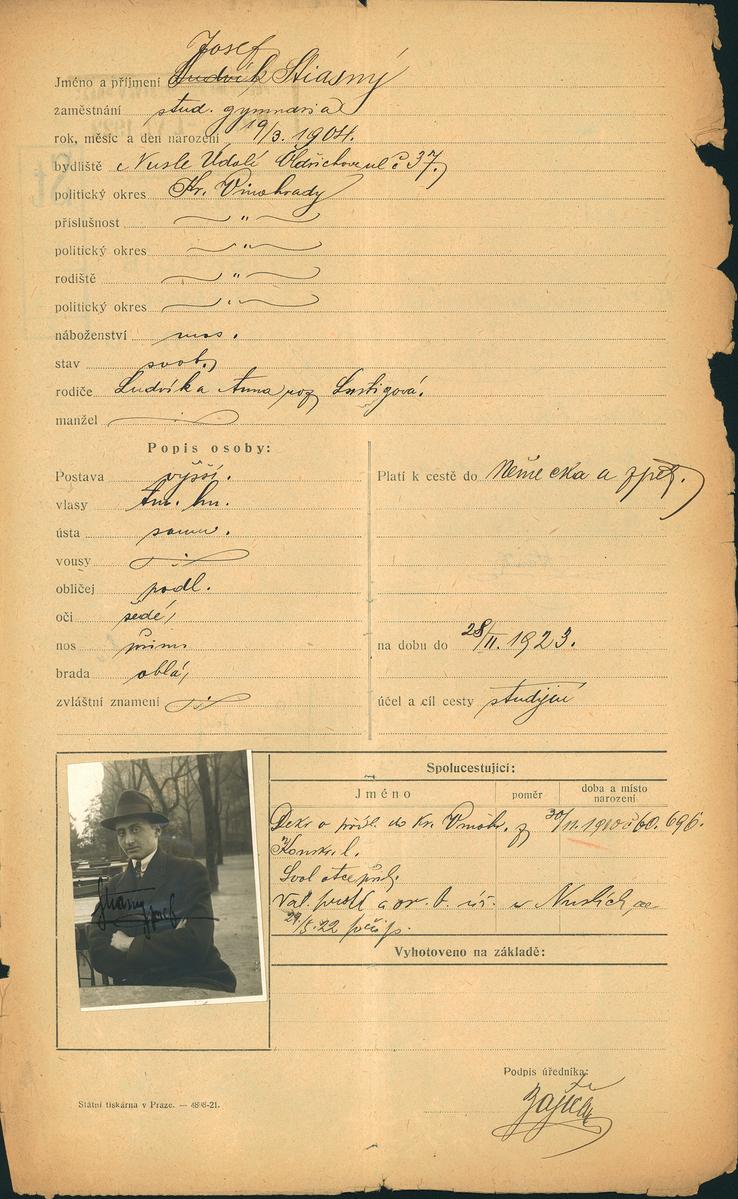 Josef
Jméno a příjmení Ludvík Stiasný
zaměstnání stud. gymnasia
rok, měsíc a den narození 19/3. 1904.
bydliště Nusle Údolí Oldřichova ul č 37.
politický okres Kr. Vinohrady
příslušnost — " —
politický okres — " —
rodiště — " —
politický okres — " —
náboženství
stav svob.
rodiče Ludvík a Anna roz Lustigová.
manžel
Popis osoby:
Postava vyšší.
Platí k cestě do Německa a zpět.
vlasy tm. hn.
ústa soum.
vousy
obličej podl.
oči šedé,
nos přím.
na dobu do 28/II. 1923.
brada oblá,
zvláštní znamení
účel a cíl cesty studijní
Spolucestující:
Jméno
poměr
doba a místo narození
Dekr o přísl. do Kr. Vinohr. z 30/11. 1910 č 60. 696.
Svol otce
v Nuslích
29/5. 22
Vyhotoveno na základě:
Stiasný
Josef
Podpis úředníka:
Státní tiskárna v Praze. — 4898-21.